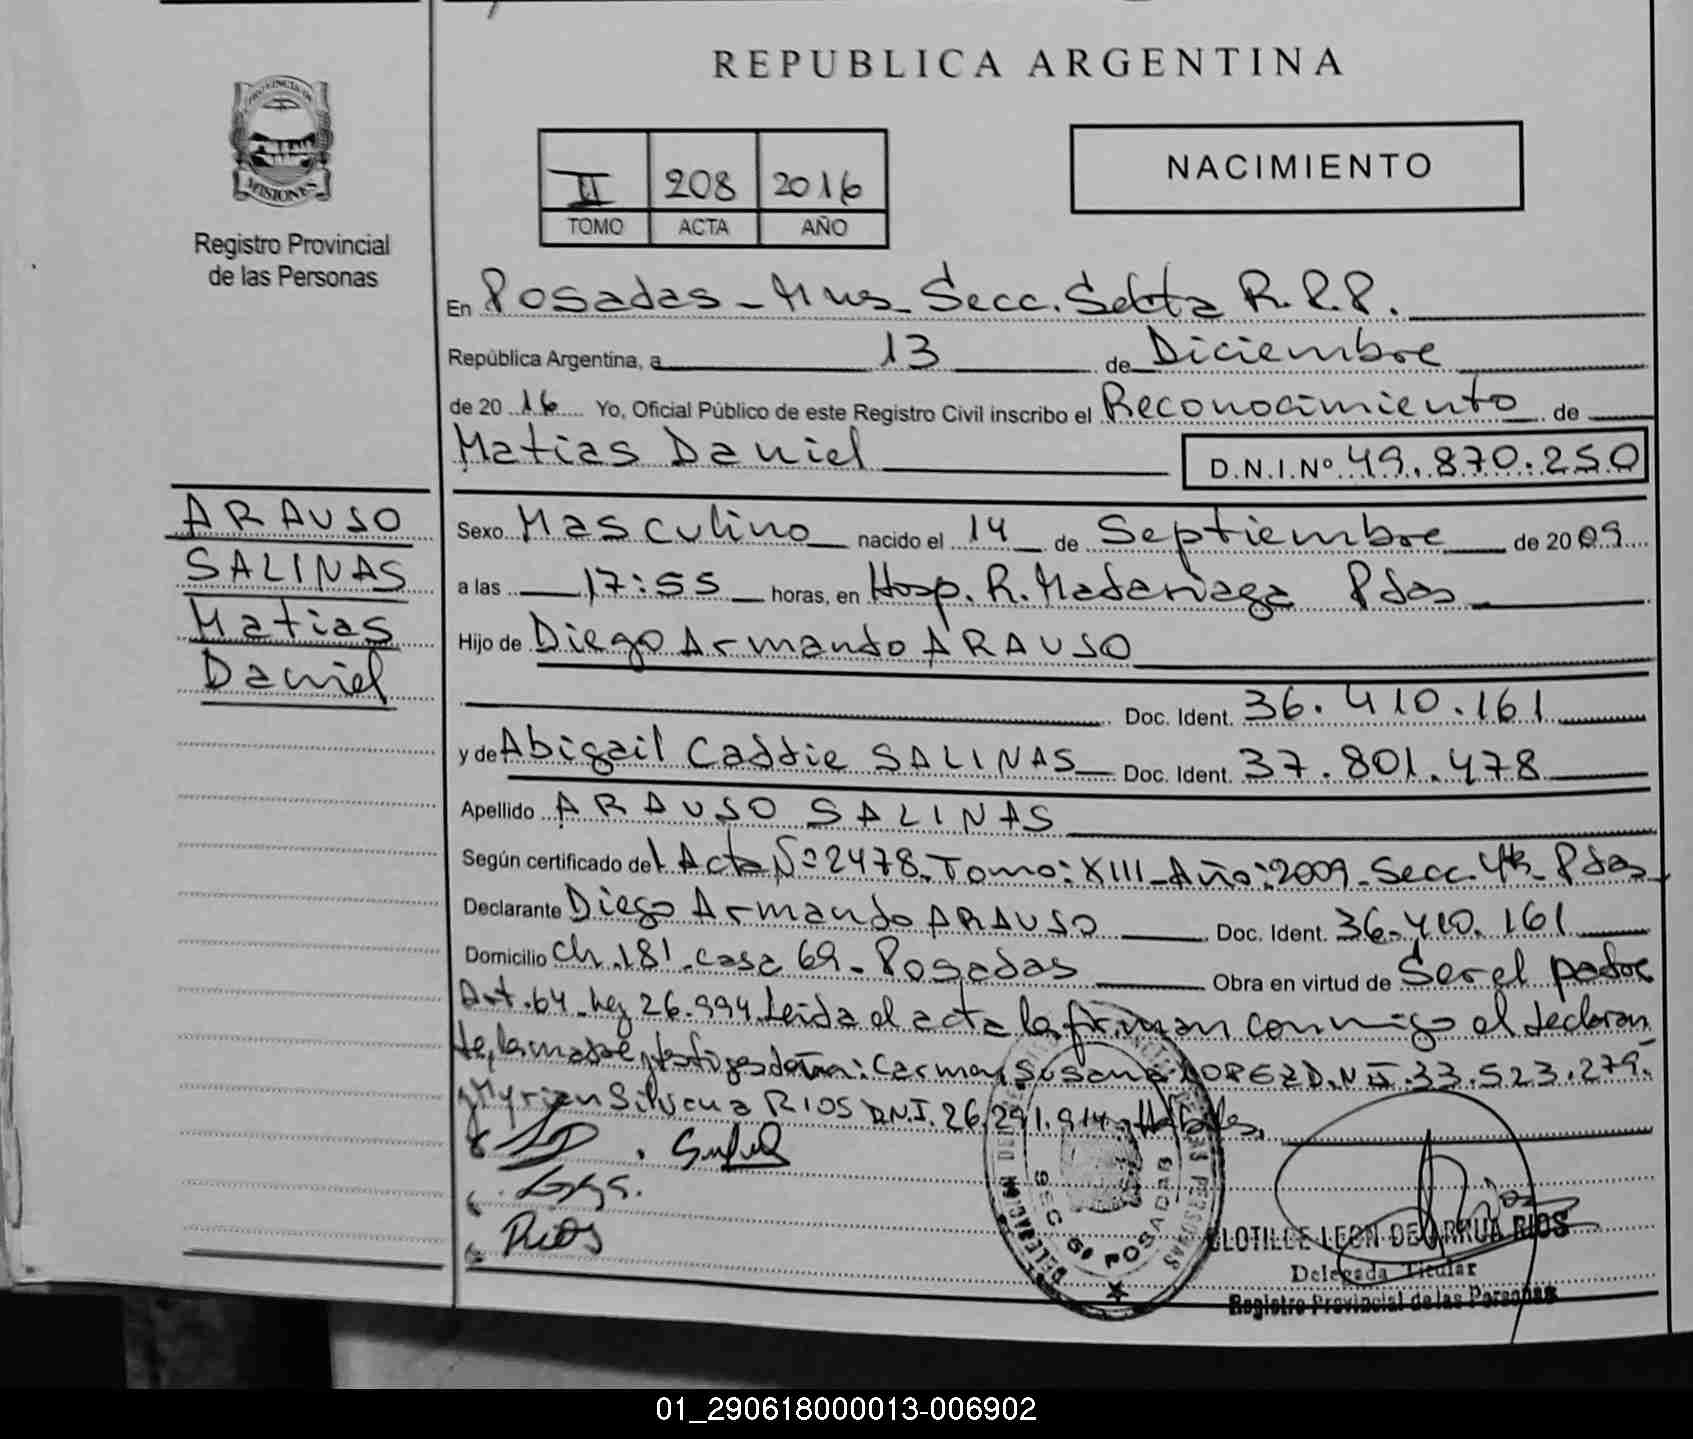 REPUBLICA ARGENTINA
PROVINCIA DE
MISIONES
Registro Provincial
de las Personas
II 208 2016
TOMO ACTA AÑO
NACIMIENTO
En Posadas - Mns Secc. Sexta R.P.P.
República Argentina, a 13 de Diciembre
de 20 16 Yo, Oficial Público de este Registro Civil inscribo el Reconocimiento de
Matias Daniel D.N.I.Nº 49.870.250
ARAUSO
SALINAS
Matias
Daniel
Sexo Masculino nacido el 14 de Septiembre de 20 09
a las 17:55 horas, en Hosp. R. Madariaga Pdas
Hijo de Diego Armando ARAUSO
Doc. Ident. 36.410.161
y de Abigail Caddie SALINAS Doc. Ident. 37.801.478
Apellido ARAUSO SALINAS
Según certificado del Acta Nº 2478 - Tomo: XIII - Año: 2009 - Secc. 4ta - Pdas
Declarante Diego Armando ARAUSO Doc. Ident. 36.410.161
Domicilio Ch. 181 - casa 69 - Posadas Obra en virtud de Ser el padre
Art. 64 - Ley 26.994. Leida el acta la firman conmigo el declaran
te, la madre, testigos Carmen Susana LOPEZ D.N.I. 33.523.279.
y Myrian Silvana RIOS D.N.I. 26.291.914.
Rios
SECC 6ª POSADAS
CLOTILDE LEON DE ARRUA RIOS
Delegada Titular
Registro Provincial de las Personas
01_290618000013-006902